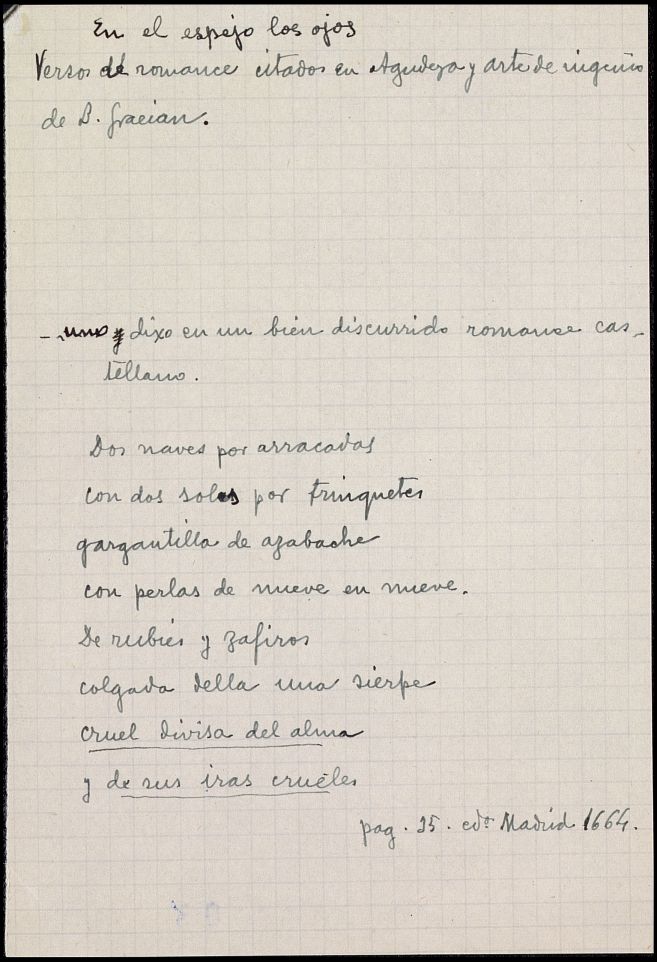 En el espejo los ojos
Versos de romance citados en Agudeza y arte de ingenio
de B. Gracian.
- uno y dixo en un bien discurrido romance cas-
tellano.
Dos naves por arracadas
con dos soles por trinquetes
gargantilla de azabache
con perlas de nueve en nueve.
De rubies y zafiros
colgada della una sierpe
cruel divisa del alma
y de sus iras crueles
pag. 25. edon Madrid 1664.